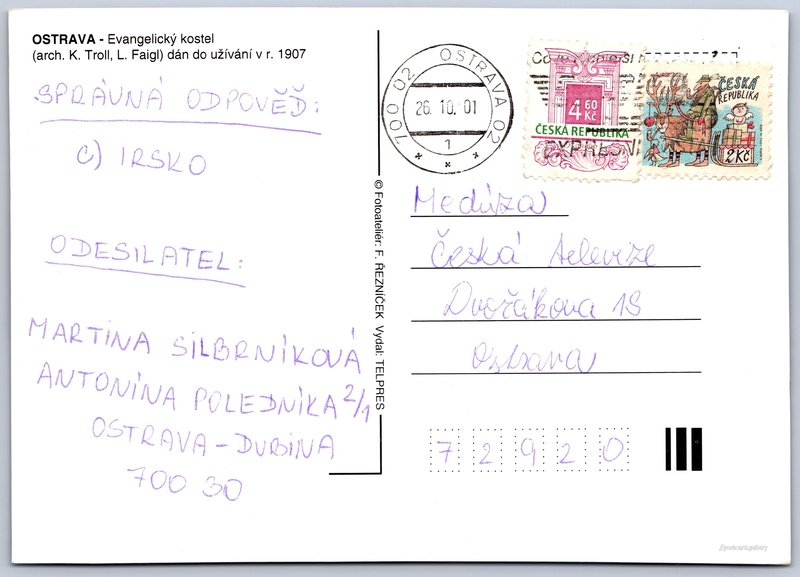 OSTRAVA - Evangelický kostel
(arch. K. Troll, L. Faigl) dán do užívání v r. 1907
SPRÁVNÁ ODPOVĚĎ:
C) IRSKO
ODESILATEL:
MARTINA SILBRNÍKOVÁ
ANTONÍNA POLEDNÍKA 2/1
OSTRAVA-DUBINA
700 30
© Fotoateliér: F. ŘEZNÍČEK Vydal: TELPRES
700 02 OSTRAVA 02
26.10.01
1
4 60
Kč
ČESKÁ REPUBLIKA
ČESKÁ
REPUBLIKA
2 Kč
Medúza
Česká televize
Dvořákova 18
Ostrava
72920
postcard.gallery